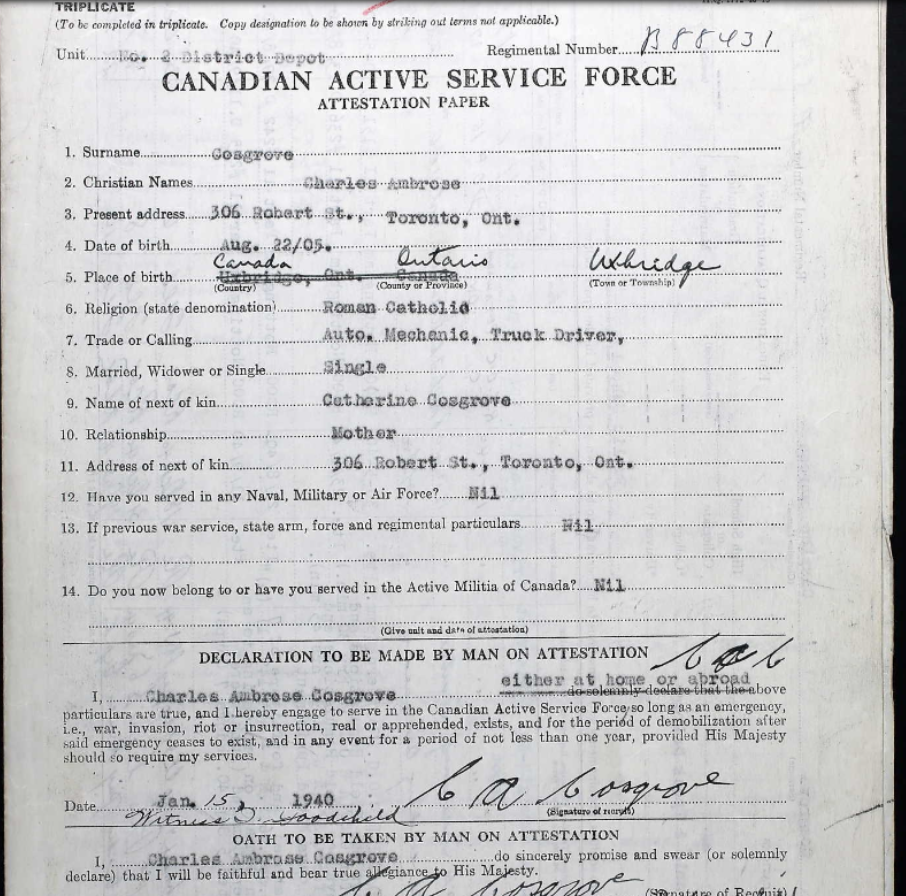 TRIPLICATE
(To be completed in triplicate. Copy designation to be shown by striking out terms not applicable.)
Unit No. 2 District Depot Regimental Number B 88431
CANADIAN ACTIVE SERVICE FORCE
ATTESTATION PAPER
1. Surname Cosgrove
2. Christian Names Charles Ambrose
3. Present address 306 Robert St., Toronto, Ont.
4. Date of birth Aug. 22/05.
Canada Ontario Uxbridge
5. Place of birth Uxbridge, Ont. Canada
(Country) (County or Province) (Town or Township)
6. Religion (state denomination) Roman Catholic
7. Trade or Calling Auto. Mechanic, Truck Driver,
8. Married, Widower or Single Single
9. Name of next of kin Catherine Cosgrove
10. Relationship Mother
11. Address of next of kin 306 Robert St., Toronto, Ont.
12. Have you served in any Naval, Military or Air Force? Nil
13. If previous war service, state arm, force and regimental particulars Nil
14. Do you now belong to or have you served in the Active Militia of Canada? Nil
(Give unit and date of attestation)
DECLARATION TO BE MADE BY MAN ON ATTESTATION C A C
either at home or abroad
I, Charles Ambrose Cosgrove do solemnly declare that the above
particulars are true, and I hereby engage to serve in the Canadian Active Service Force so long as an emergency,
i.e., war, invasion, riot or insurrection, real or apprehended, exists, and for the period of demobilization after
said emergency ceases to exist, and in any event for a period of not less than one year, provided His Majesty
should so require my services.
C A Cosgrove
Date Jan. 15, 1940 (Signature of recruit)
Witness Goodchild
OATH TO BE TAKEN BY MAN ON ATTESTATION
I, Charles Ambrose Cosgrove do sincerely promise and swear (or solemnly
declare) that I will be faithful and bear true allegiance to His Majesty.
C A Cosgrove (Signature of Recruit)